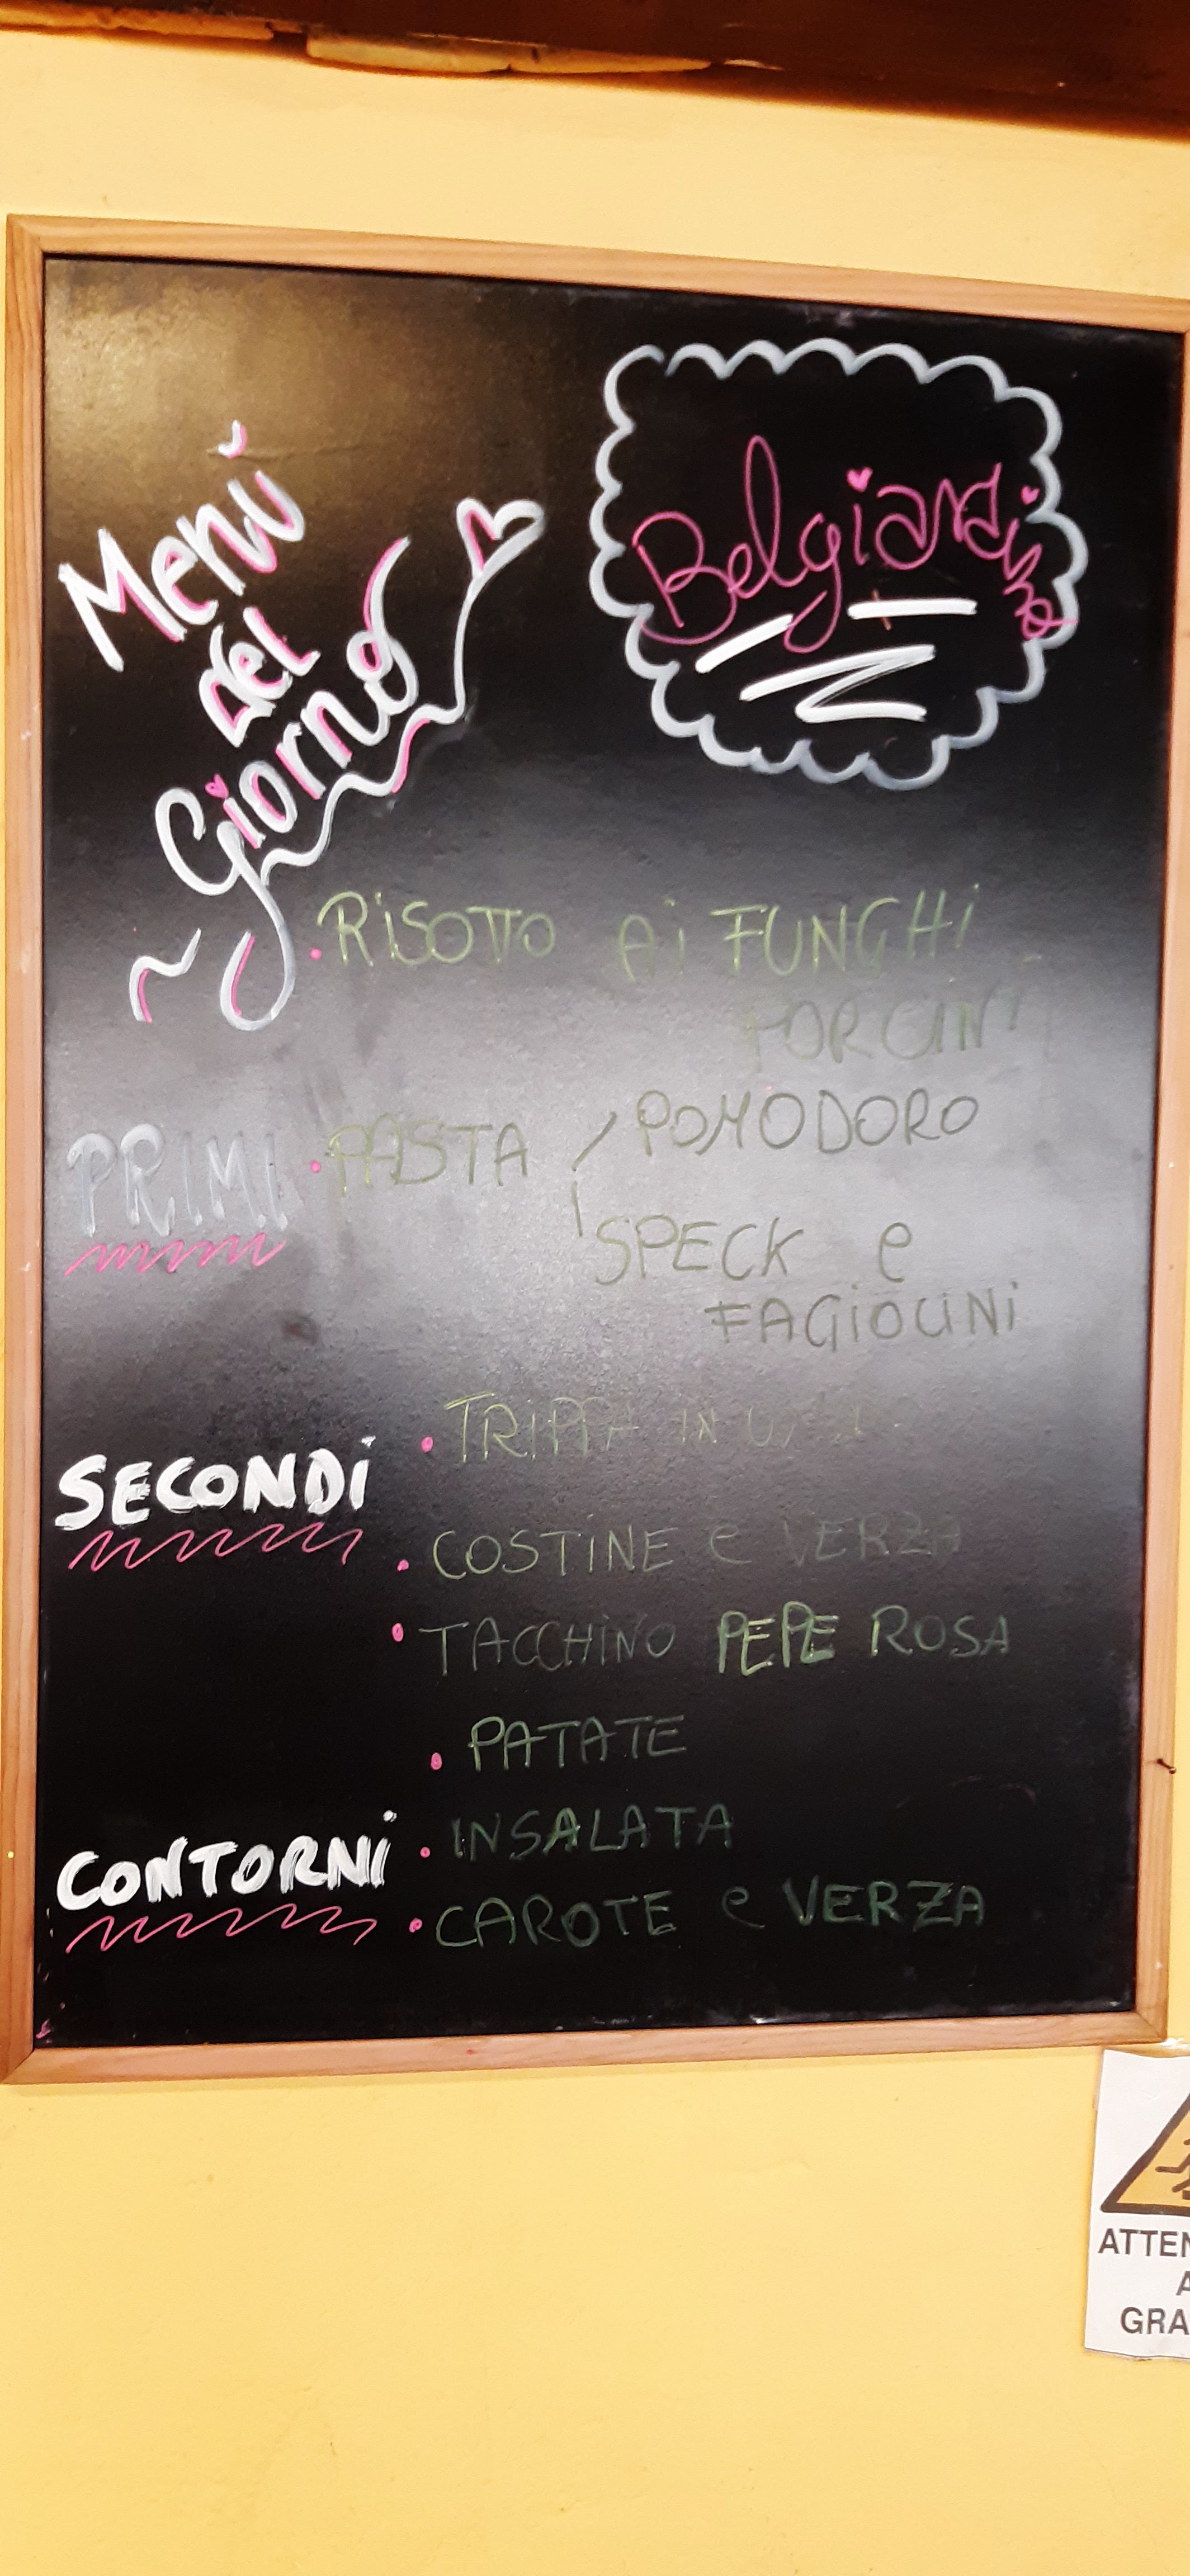 Menù
del
Giorno
Belgiardino
• RiSOTTO Ai FUNGHi
PORCINI
PRIMI
• PASTA / POMODORO
\ SPECK e
FAGiOLiNi
SECONDi
• TRIPPA IN
• COSTiNE e VERZA
• TACCHiNO PEPE ROSA
CONTORNi
• PATATE
• INSALATA
• CAROTE e VERZA